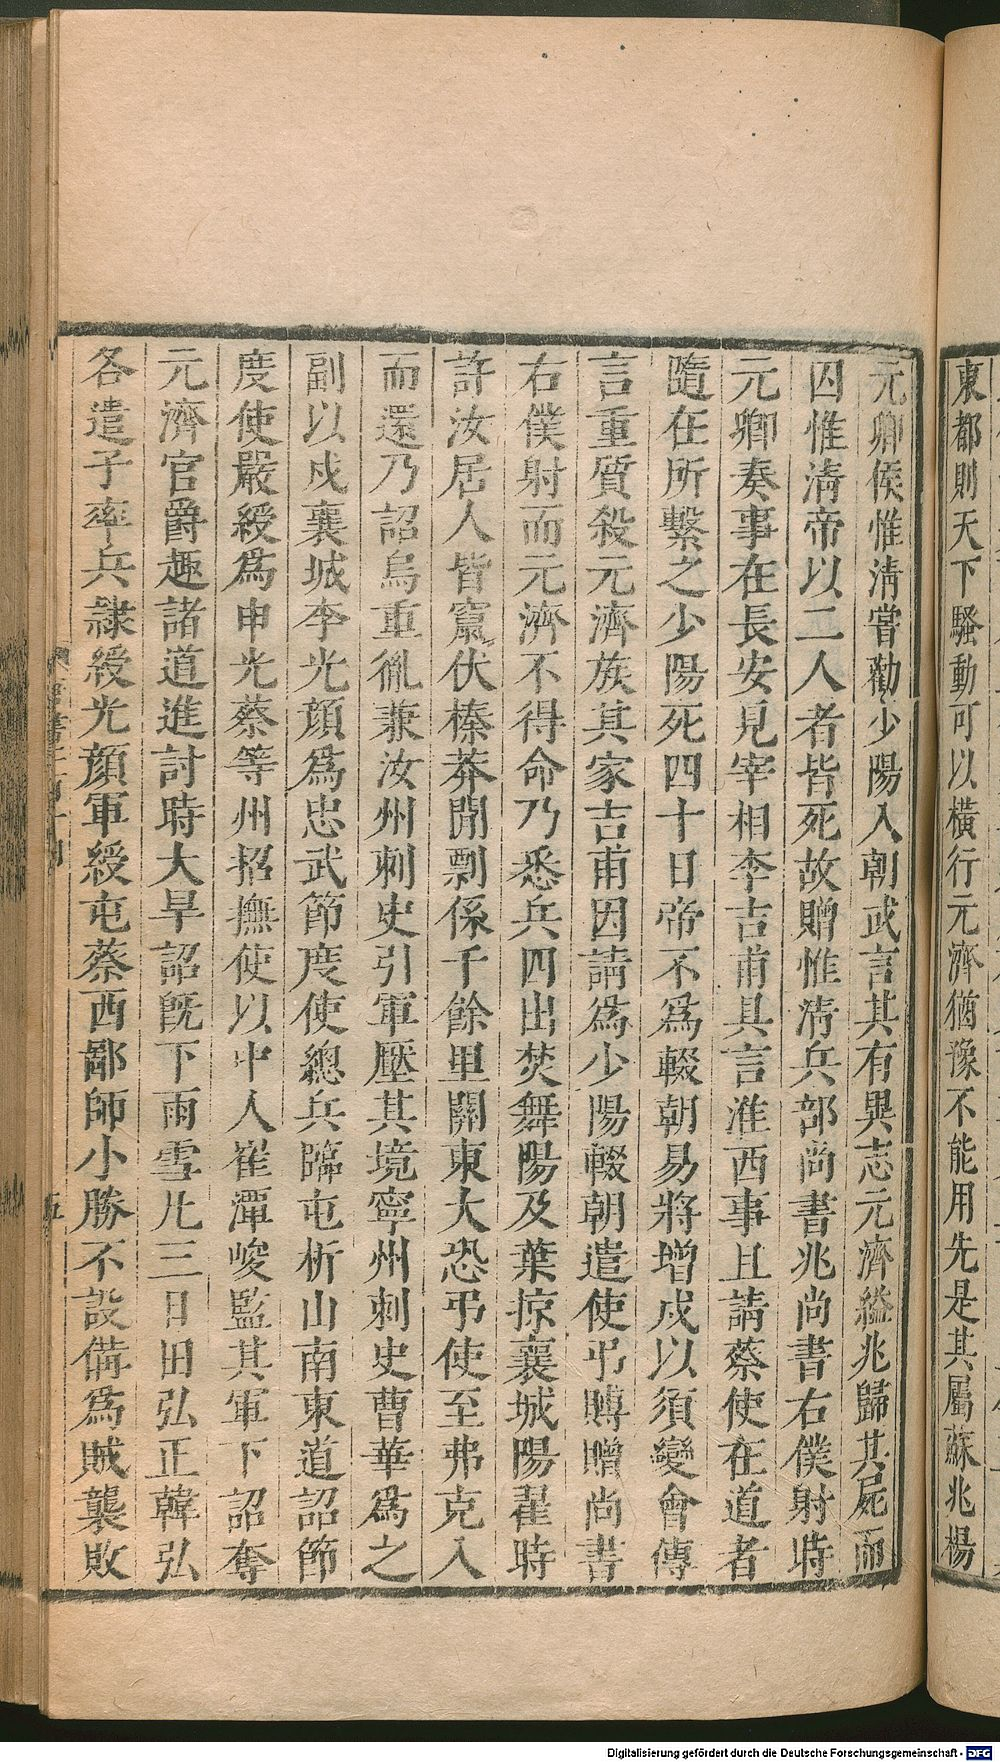 東都則天下騷動可以橫行元濟猶豫不能用先是其屬蘇兆楊
元卿侯惟淸嘗勸少陽入朝武言其有異志元濟縊兆歸其屍而
囚惟淸帝以二人者皆死故贈惟淸兵部尚書兆尚書右僕射時
元卿奏事在長安見宰相李吉甫具言淮西事且請蔡使在道者
隨在所繫之少陽死四十日帝不爲輟朝易將增戍以須變會傳
言重質殺元濟族其家吉甫因請爲少陽輟朝遣使弔賻贈尚書
右僕射而元濟不得命乃悉兵四出焚舞陽及葉掠襄城陽翟時
許汝居人皆竄伏榛莽間剽係千餘里關東大恐弔使至弗克入
而還乃詔烏重胤兼汝州刺史引軍壓其境寧州刺史曹華爲之
副以戍襄城李光顏爲忠武節度使總兵臨屯析山南東道詔節
度使嚴綬爲申光蔡等州招撫使以中人崔潭峻監其軍下詔奪
元濟官爵趣諸道進討時大旱詔旣下雨雪凡三日田弘正韓弘
各遣子率兵隷綬光顏軍綬屯蔡西鄙師小勝不設備爲賊襲敗
五
Digitalisierung gefördert durch die Deutsche Forschungsgemeinschaft - DFG